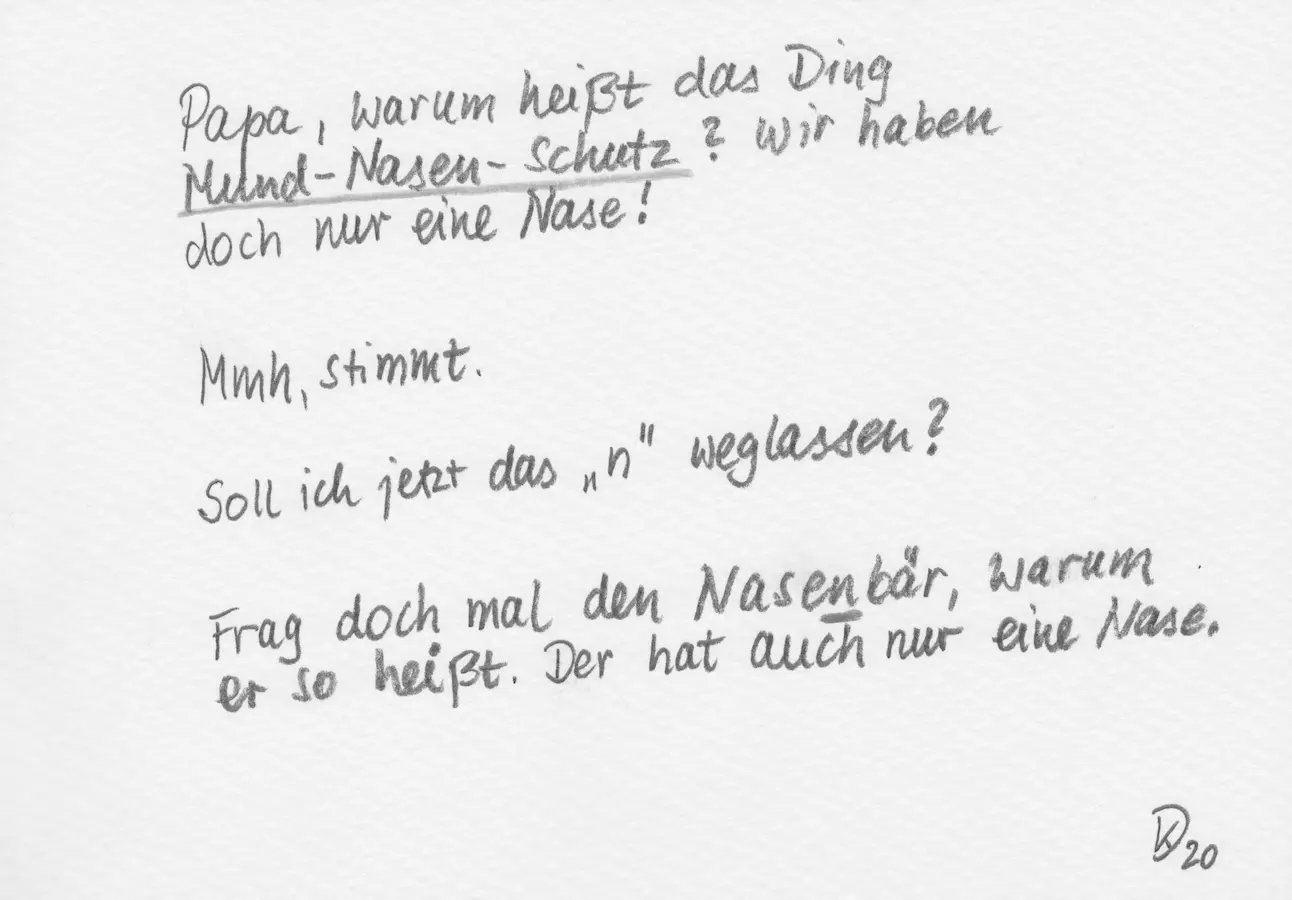 Papa, warum heißt das Ding
Mund-Nasen-Schutz? Wir haben
doch nur eine Nase!
Mmh, stimmt.
Soll ich jetzt das „n" weglassen?
Frag doch mal den Nasenbär, warum
er so heißt. Der hat auch nur eine Nase.
DK 20